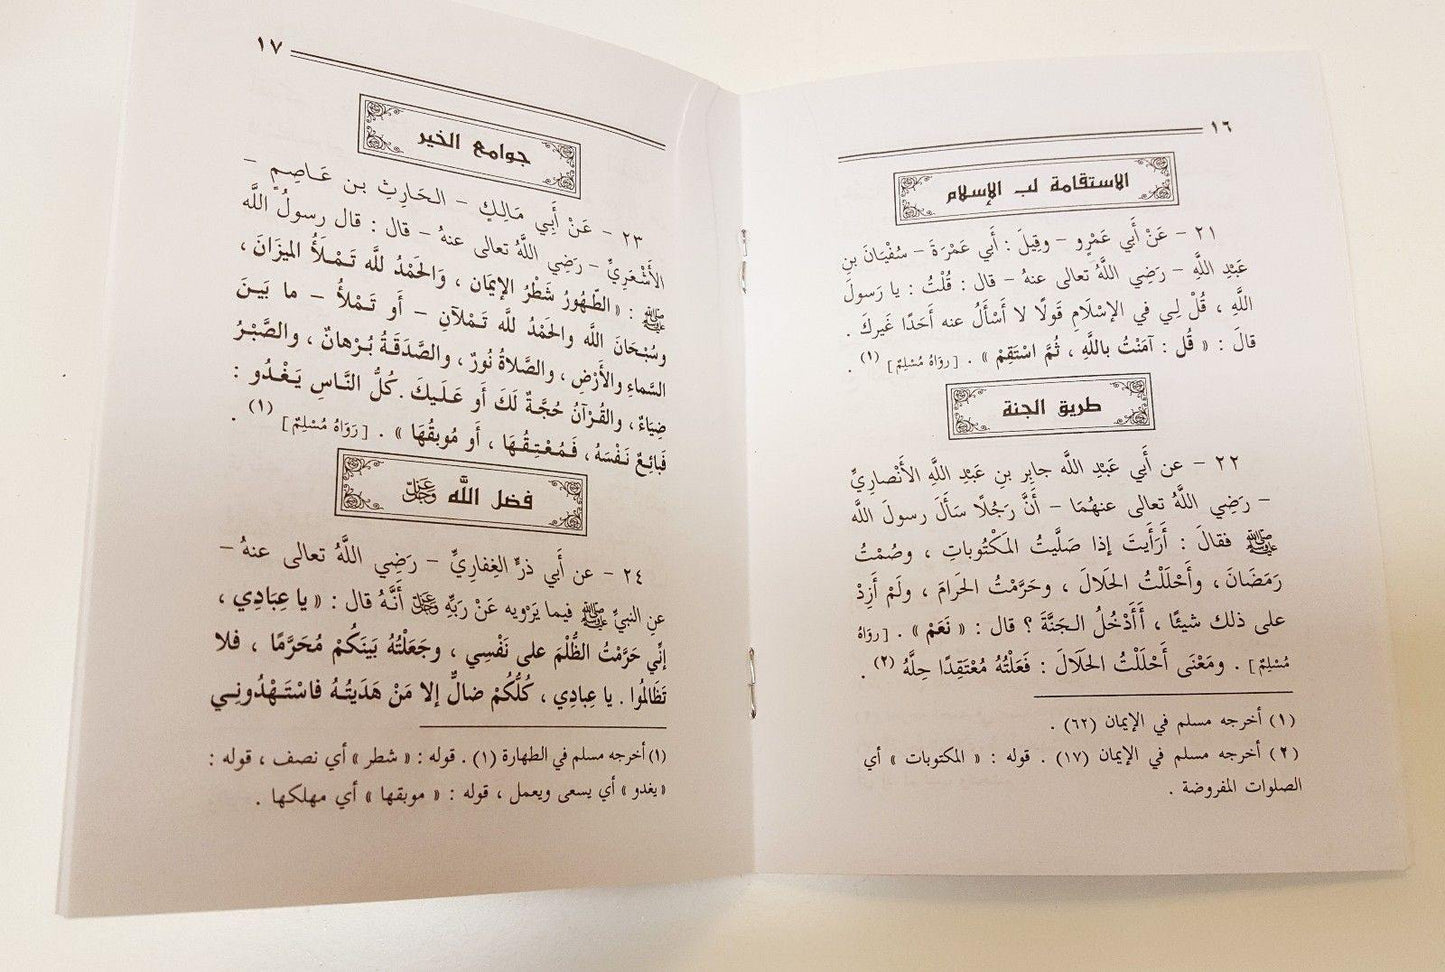 ١٦
الاستقامة لب الإسلام
٢١ - عَنْ أَبِي عَمْرٍو - وقِيلَ : أَبي عَمْرَةَ - سُفْيَانَ بنِ
عَبْدِ اللَّهِ - رَضِي اللَّهُ تعالى عنهُ - قال : قُلْتُ : يا رَسولَ
اللَّهِ ، قُلْ لِي في الإسْلَامِ قَولًا لا أَسْأَلُ عنه أَحَدًا غَيركَ .
قالَ : « قُل : آمَنْتُ باللَّهِ ، ثُمَّ اسْتَقِمْ » . [رَوَاهُ مُسْلِمٌ] (١) .
طريق الجنة
٢٢ - عن أَبي عَبْدِ اللَّه جابِر بنِ عَبْدِ اللَّهِ الأَنْصارِيِّ
- رَضِي اللَّهُ تعالى عنهُمَا - أَنَّ رَجُلًا سَأَلَ رسولَ اللَّه
ﷺ فقالَ : أَرَأَيتَ إذا صَلَّيتُ المَكْتُوباتِ ، وصُمْتُ
رَمَضَانَ ، وأَحْلَلْتُ الحَلالَ ، وحَرَّمْتُ الحَرامَ ، ولَمْ أَزِدْ
على ذلك شيئًا ، أَأَدْخُلُ الـجَنَّةَ ؟ قال : « نَعَمْ » . [رَوَاهُ
مُسْلِمٌ] . ومَعْنَى أَحْلَلْتُ الحَلَالَ : فَعَلْتُهُ مُعْتَقِدًا حِلَّهُ (٢) .
(١) أخرجه مسلم في الإيمان (٦٢) .
(٢) أخرجه مسلم في الإيمان (١٧) . قوله : « المكتوبات » أي
الصلوات المفروضة .
١٧
جوامع الخير
٢٣ - عَنْ أَبِي مَالِكٍ - الـحَارِثِ بن عَـاصِمٍ -
الأَشْعَرِيِّ - رَضِي اللَّهُ تعالى عنهُ - قال : قال رسولُ اللَّه
ﷺ : « الطّهُورُ شَطْرُ الإيمَان ، وَالحَمْدُ للَّه تَـمْـلَأُ الميزَانَ ،
وسُبْحَانَ اللَّه والحَمْدُ للَّه تَمْلآنِ - أَو تَمْلأُ - ما بَيـنَ
السَّماءِ والأَرْضِ ، والصَّلاةُ نُورٌ ، والصَّدَقَةُ بُرْهانٌ ، والصَّبْرُ
ضِيَاءٌ ، والقُرْآنُ حُجَّةٌ لَكَ أَو عَـلَـيكَ . كُلُّ النَّـاسِ يَـغْـدُو :
فَبَائِعٌ نَـفْسَهُ ، فَـمُـعْـتِـقُـهَا ، أَو مُوبقُهَا » . [رَوَاهُ مُسْلِمٌ] (١) .
فضل اللَّه ﷿
٢٤ - عن أَبي ذَرٍّ الغِفارِيِّ - رَضِي اللَّهُ تعالى عنهُ -
عنِ النبيِّ ﷺ فيما يَرْويه عَنْ رَبِّهِ ﷿ أَنَّهُ قال : « يا عِبَادِي ،
إنِّي حَرَّمْتُ الظُّلْمَ على نَفْسِي ، وجَعَلْتُهُ بَينَكُمْ مُحَرَّمًا ، فلا
تَظَالمُوا . يا عِبادِي ، كُلُّكُمْ ضالٌّ إلا مَنْ هَدَيتُـهُ فاسْـتَـهْدُونِـي
(١) أخرجه مسلم في الطهارة (١) . قوله : « شطر » أي نصف ، قوله :
« يغدو » أي يسعى ويعمل ، قوله : « موبقها » أي مهلكها .